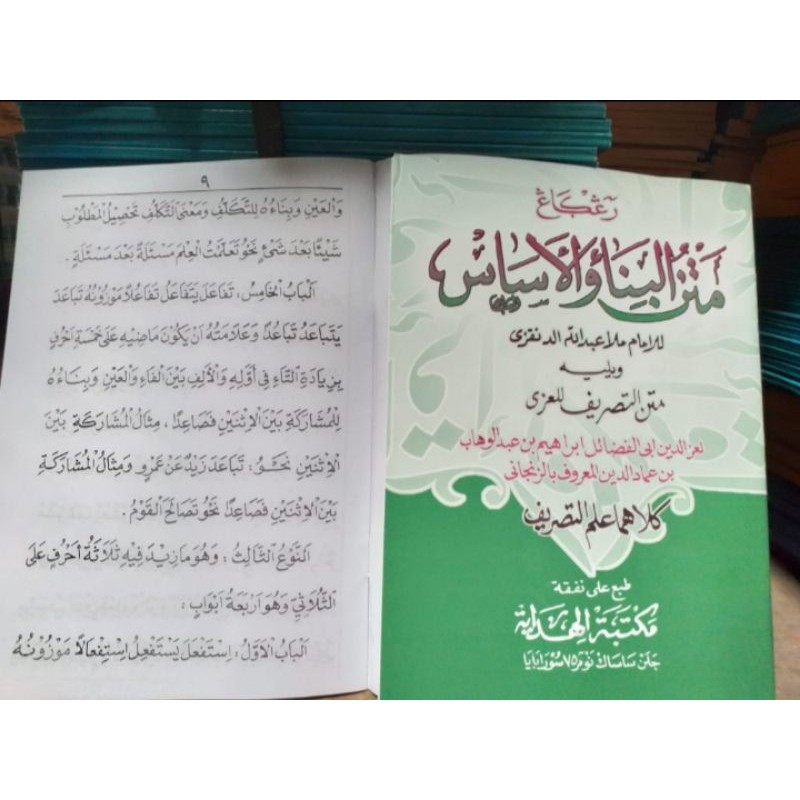 ٩
وَالْعَيْنِ وَبِنَاءُهُ لِلتَّكَلُّفِ وَمَعْنَى التَّكَلُّفِ تَحْصِيْلُ الْمَطْلُوْبِ
شَيْئًا بَعْدَ شَيْءٍ نَحْوُ تَعَلَّمْتُ الْعِلْمَ مَسْئَلَةً بَعْدَ مَسْئَلَةٍ .
اَلْبَابُ الْخَامِسُ : تَفَاعَلَ يَتَفَاعَلُ تَفَاعُلًا مَوْزُوْنُهُ تَبَاعَدَ
يَتَبَاعَدُ تَبَاعُدًا وَعَلَامَتُهُ اَنْ يَكُوْنَ مَاضِيْهِ عَلَى خَمْسَةِ اَحْرُفٍ
بِزِيَادَةِ التَّاءِ فِي اَوَّلِهِ وَالْأَلِفِ بَيْنَ الْفَاءِ وَالْعَيْنِ وَبِنَاءُهُ
لِلْمُشَارَكَةِ بَيْنَ الْاِثْنَيْنِ فَصَاعِدًا ، مِثَالُ الْمُشَارَكَةِ بَيْنَ
الْاِثْنَيْنِ نَحْوُ : تَبَاعَدَ زَيْدٌ عَنْ عَمْرٍو وَمِثَالُ الْمُشَارَكَةِ
بَيْنَ الْاِثْنَيْنِ فَصَاعِدًا نَحْوُ تَصَالَحَ الْقَوْمُ .
اَلنَّوْعُ الثَّالِثُ : وَهُوَ مَا زِيْدَ فِيْهِ ثَلَاثَةُ أَحْرُفٍ عَلَى
الثُّلَاثِيِّ وَهُوَ اَرْبَعَةُ اَبْوَابٍ :
اَلْبَابُ الْاَوَّلُ : اِسْتَفْعَلَ يَسْتَفْعِلُ اِسْتِفْعَالًا مَوْزُوْنُهُ
مَتْنُ الْبِنَاءِ وَالْأَسَاسِ
للامام ملا عبدالله الدنقزى
ويليه
متن التصريف للعزى
لعز الدين ابى الفضائل ابراهيم بن عبد الوهاب
بن عماد الدين المعروف بالزنجانى
كلاهما علم التصريف
طبع على نفقة
مكتبة الهداية
جلن ساساك نومر ٧٥ سورابايا